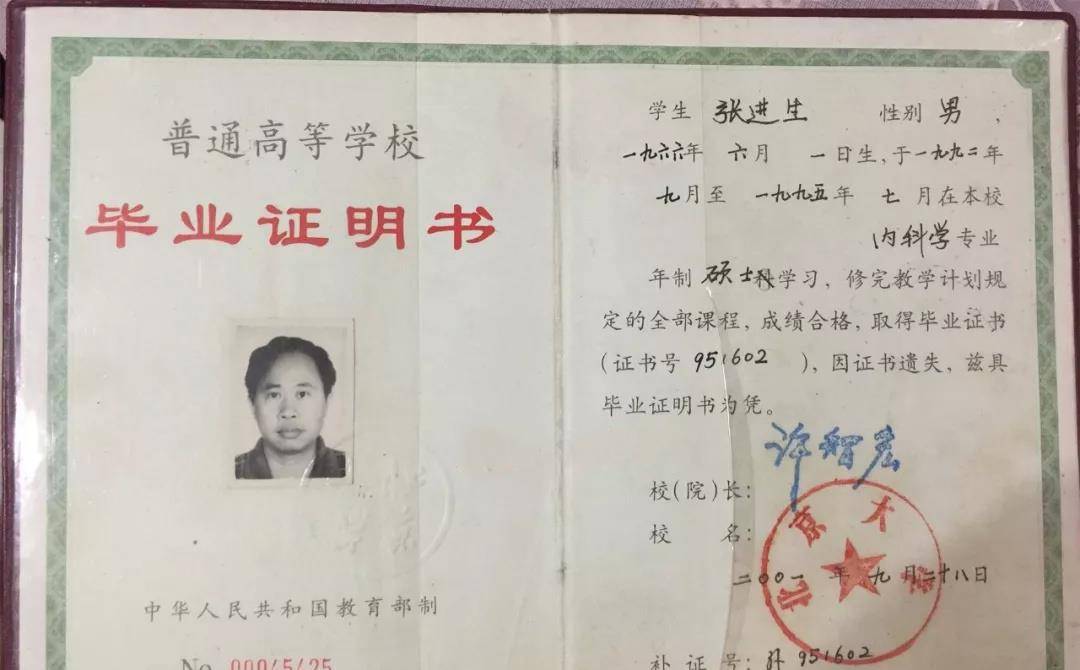 普通高等学校
毕业证明书
中华人民共和国教育部制
No 00015125
学生 张进生 性别 男 ,
一九六六年 六月 一日生,于一九九二年
九月至 一九九五年 七月在本校
内科学专业
年制 硕士科学习,修完教学计划规
定的全部课程,成绩合格,取得毕业证书
(证书号 951602 ),因证书遗失,兹具
毕业证明书为凭。
许智宏
校(院)长:
校 名:
北京大学
二〇〇一年九月二十八日
补 证 号: 951602